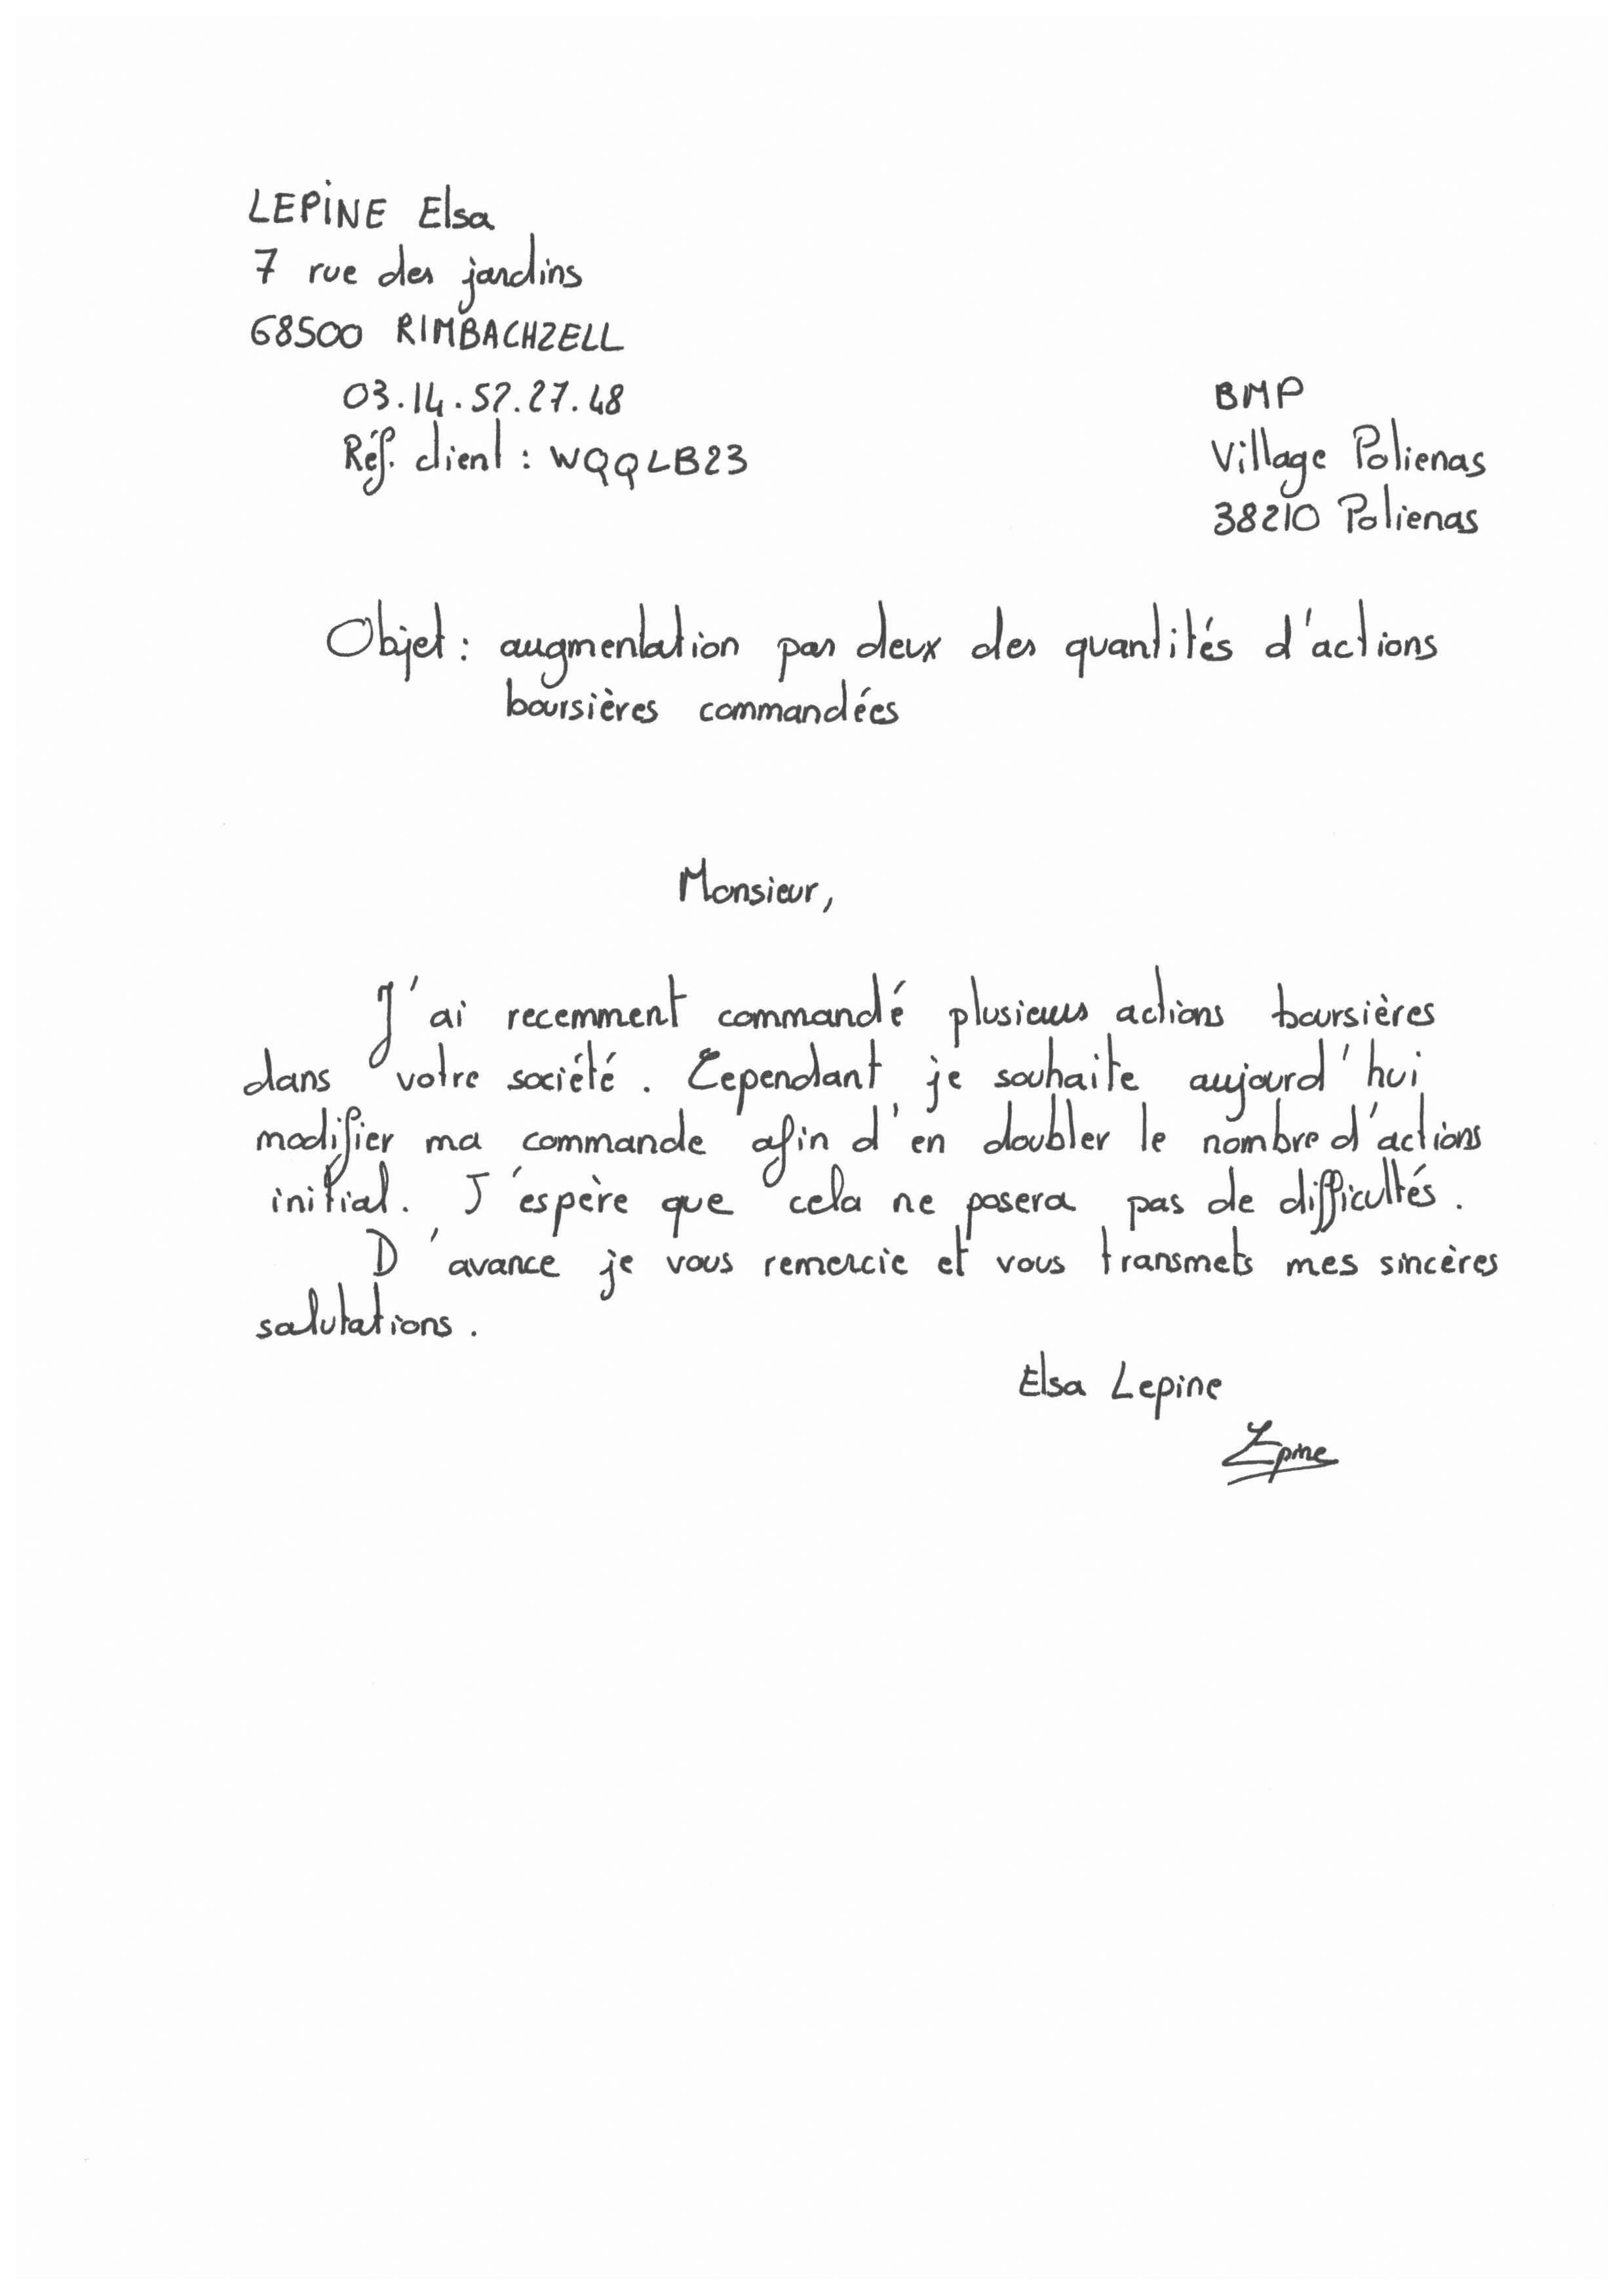 LEPINE Elsa
7 rue des jardins
68500 RIMBACHZELL
03.14.52.27.48
Réf. client : WQQLB23
BMP
Village Polienas
38210 Polienas
Objet : augmentation par deux des quantités d'actions
boursières commandées
Monsieur,
J'ai recemment commandé plusieurs actions boursières
dans votre société. Cependant je souhaite aujourd'hui
modifier ma commande afin d'en doubler le nombre d'actions
initial. J'espère que cela ne posera pas de difficultés.
D'avance je vous remercie et vous transmets mes sincères
salutations.
Elsa Lepine
Lepine